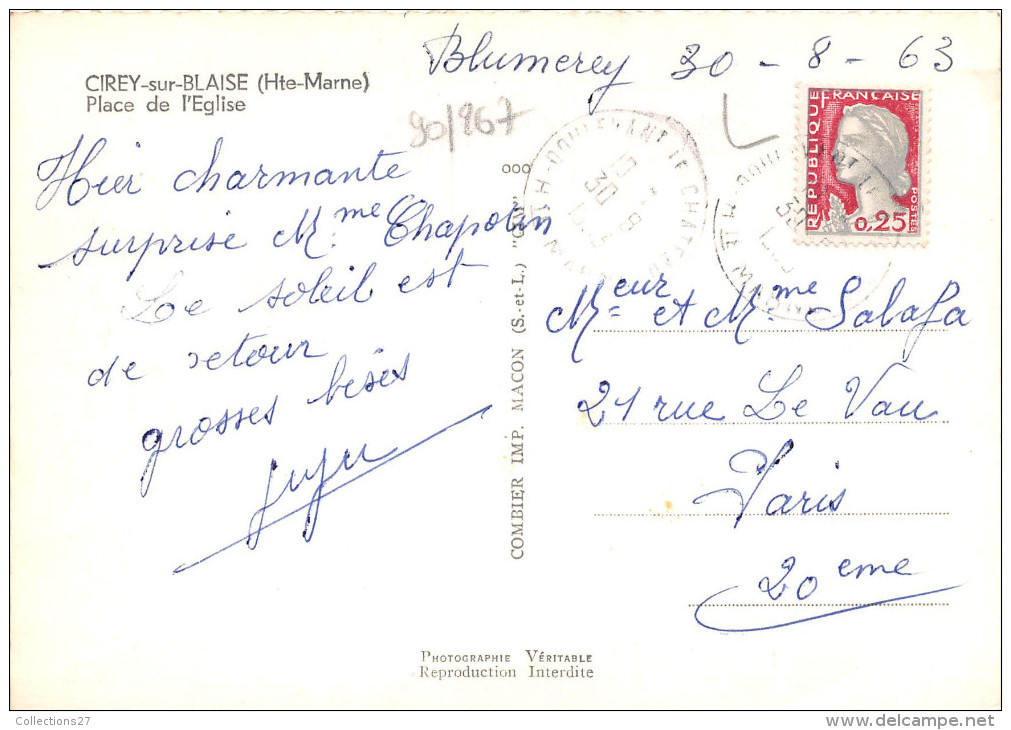 Blumerey 30 - 8 - 63
CIREY-sur-BLAISE (Hte-Marne)
Place de l'Eglise
90/267
Hier charmante
surprise Mme Chapotin
Le soleil est
de retour
grosses bises
juju
COMBIER IMP. MACON (S.-et-L.)
DOULEVANT LE CHATEAU
Hte MARNE
30 -8
REPUBLIQUE FRANCAISE
0,25
POSTES
Meur et Mme Salafa
21 rue Le Vau
Paris
20eme
PHOTOGRAPHIE VÉRITABLE
Reproduction Interdite
Collections27
delcampe.net